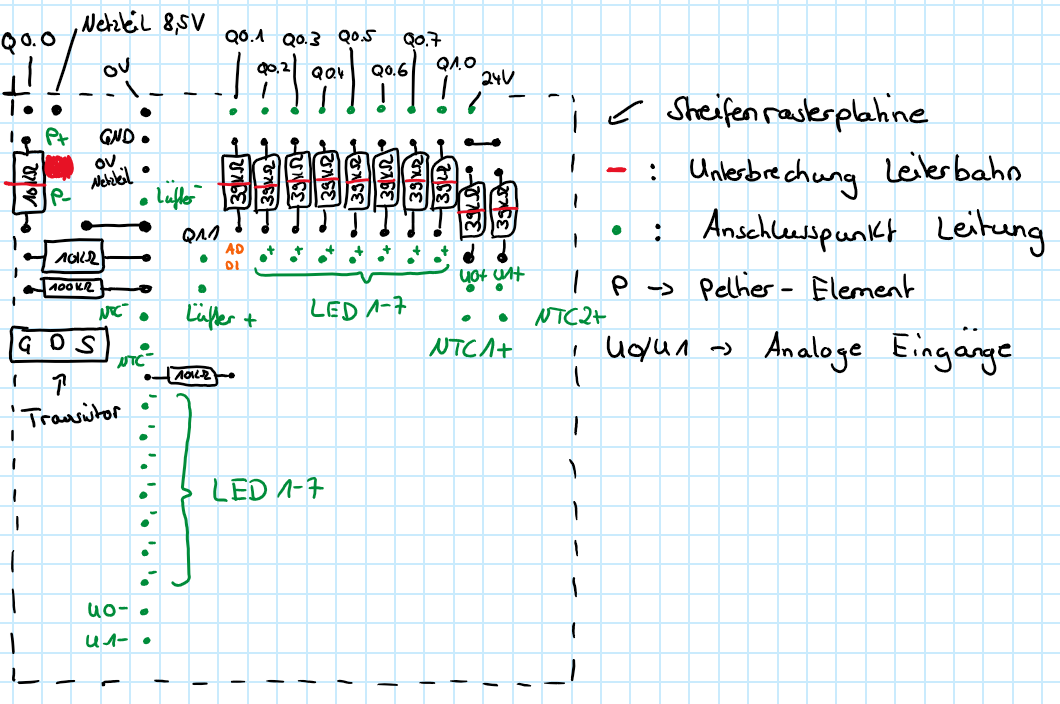 Netzteil 8,5V
Q0.0
0V
Q0.1 Q0.3 Q0.5 Q0.7
Q0.2 Q0.4 Q0.6 Q1.0 24V
P+
GND
0V
Netzteil
P-
Lüfter -
10kΩ
39kΩ 39kΩ 39kΩ 39kΩ 39kΩ 39kΩ 39kΩ 39kΩ 39kΩ 39kΩ
Q1.1
A0
D1
+ + + + + + +
10kΩ
U0+ U1+
100kΩ
LED 1-7
NTC-
Lüfter +
NTC2+
NTC1+
G D S
NTC-
10kΩ
Transistor
LED 1-7
U0-
U1-
↙ Streifenrasterplatine
- : Unterbrechung Leiterbahn
• : Anschlusspunkt Leitung
P → Peltier - Element
U0/U1 → Analoge Eingänge